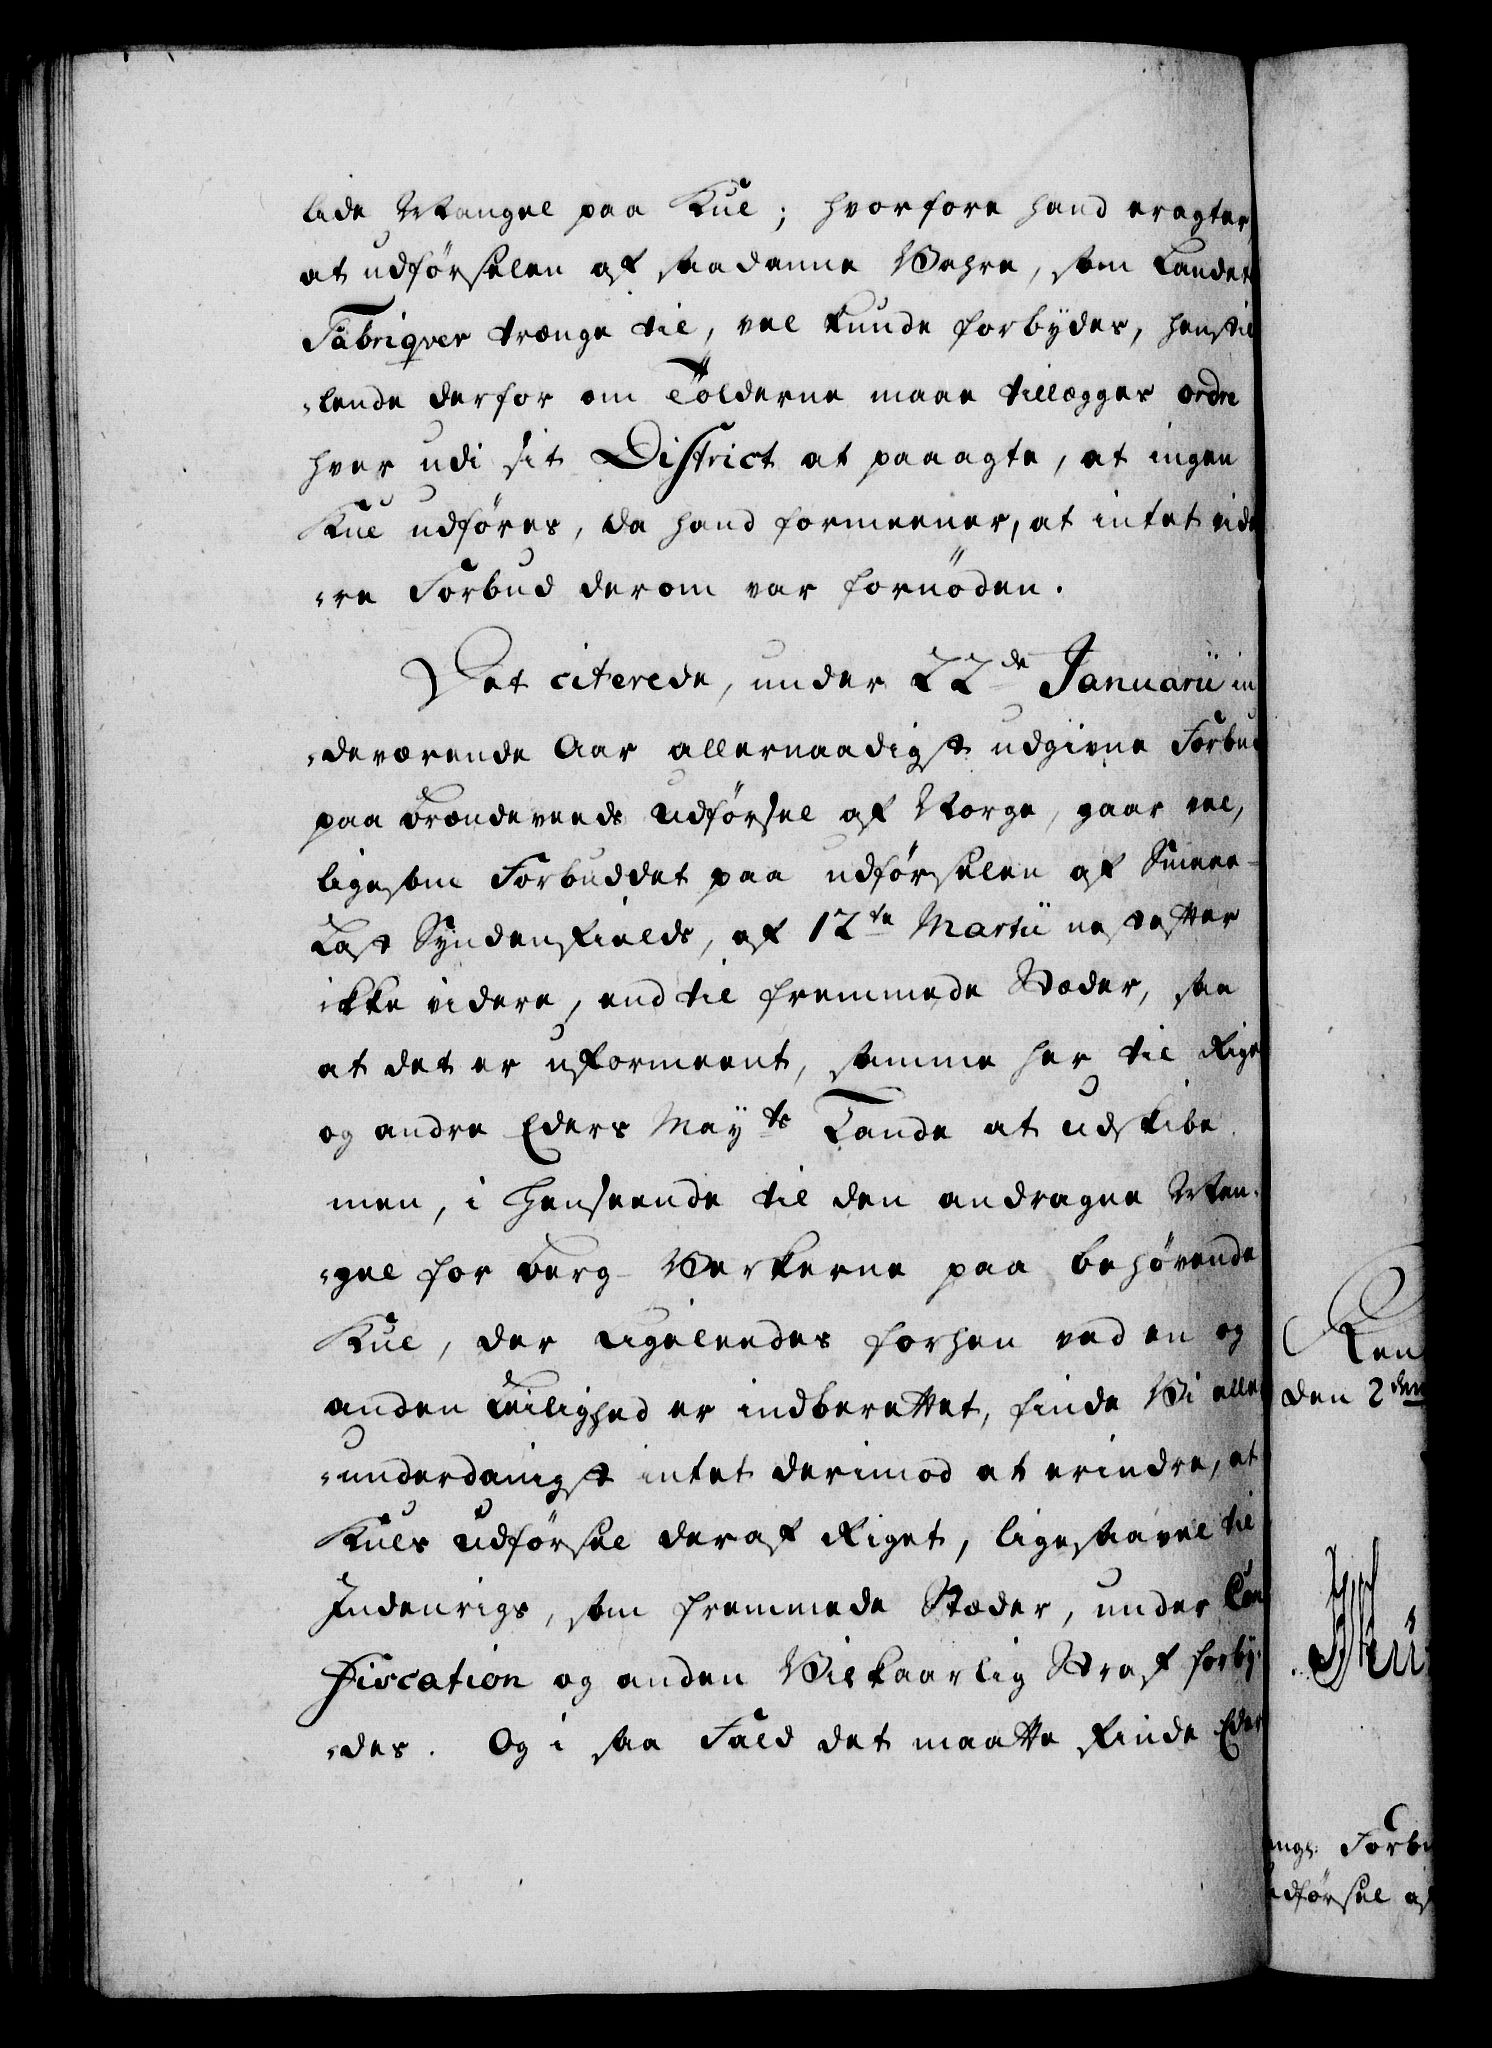 lide Mangel paa Kul; hvorfore hand eragter,
at udførselen af saadanne Vahre, som Landets
Fabriqver trænge til, vel kunde forbydes, henstil
-lende derfor om Tolderne maae tillægges ordre
hver udi sit District at paaagte, at ingen
Kul udføres, da hand formeener, at intet vide
-re Forbud derom var fornöden.
Det citerede, under 22de Januarii in
-deværende Aar allernaadigst udgivne Forbud
paa Brændeveeds Udførsel af Norge, gaar vel,
ligesom Forbuddet paa udførselen af Smaae-
Last Syndenfields, af 12te Martii nest efter
ikke videre, end til fremmede Stæder, saa
at det er uformeent, samme her til Riget
og andre Eders Mayts Lande at udskibe
men, i Henseende til den andragne Man-
-gel for Berg-Verkerne paa behøvende
Kul, der ligeleedes forhen ved en og
anden Leilighed er indberettet, finde Vi aller
-underdanigst intet derimod at erindre, at
Kuls Udførsel deraf Riget, ligesaavel til
Indenrigs, som fremmede Stæder, under Con
fiscation og anden Vilkaarlig Straf forby-
-des. Og i saa Fald det maatte finde Eders
Ren
den 2den
ngs: Forbu
udførsel af